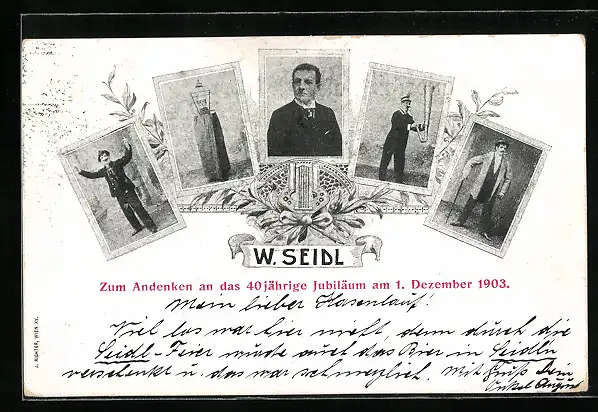 W. SEIDL
Zum Andenken an das 40jährige Jubiläum am 1. Dezember 1903.
Mein lieber Hasenlauf!
Viel los war hier nicht, denn durch die
Seidl-Feier wurde auch das Bier in Seidln
verschenkt u. das war schmerzlich. Mit Gruß Dein
Onkel August
J. RICHTER, WIEN XV.